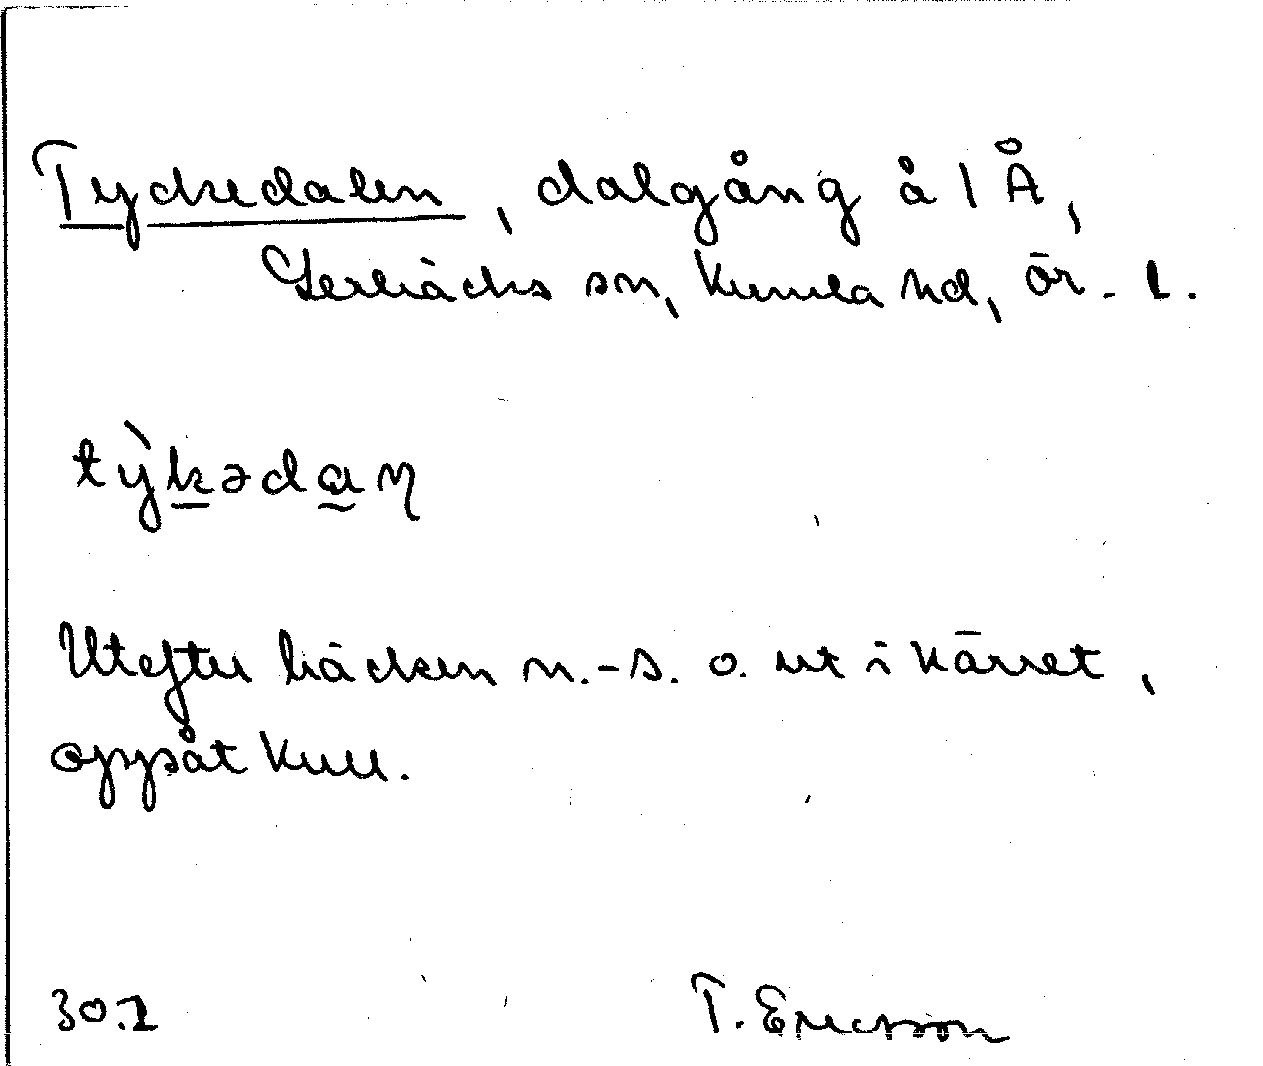 Tyckedalen, dalgång å 1 Å,
Lerbäcks sn, Kumla hd, Ör. l.
tỳ̠kədan
Utefter bäcken n.-s. o. ut i kärret,
oppåt Kull.
30.1 T. Ericsson